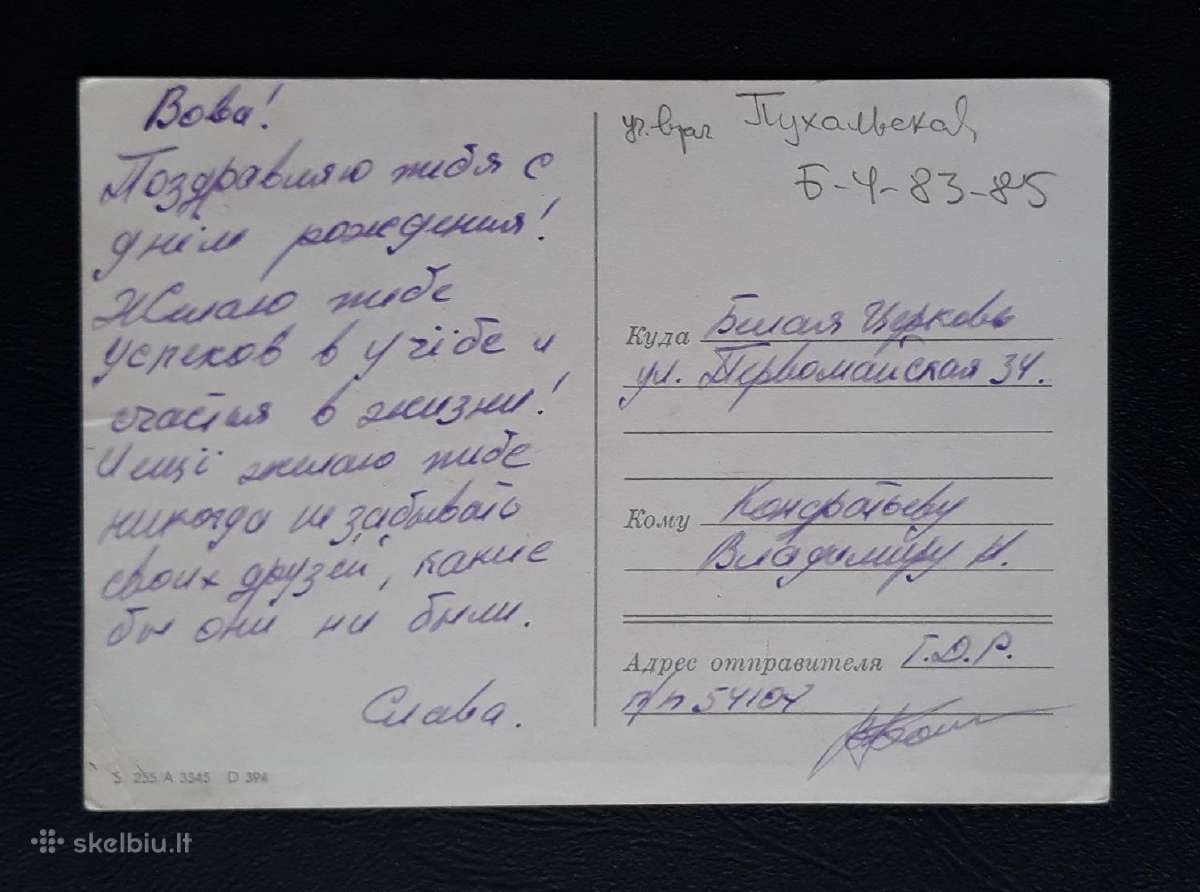 Вова!
Поздравляю тебя с
днём рождения!
Желаю тебе
успехов в учёбе и
счастья в жизни!
И ещё желаю тебе
никогда не забывать
своих друзей, какие
бы они ни были.
Слава.
S 255/A 3345 D 394
уч. врач Пухальская
Б-4-83-85
Куда Белая Церковь
ул. Первомайская 34.
Кому Кондратьеву
Владимиру Н.
Адрес отправителя Г.Д.Р.
п/п 54107
skelbiu.lt